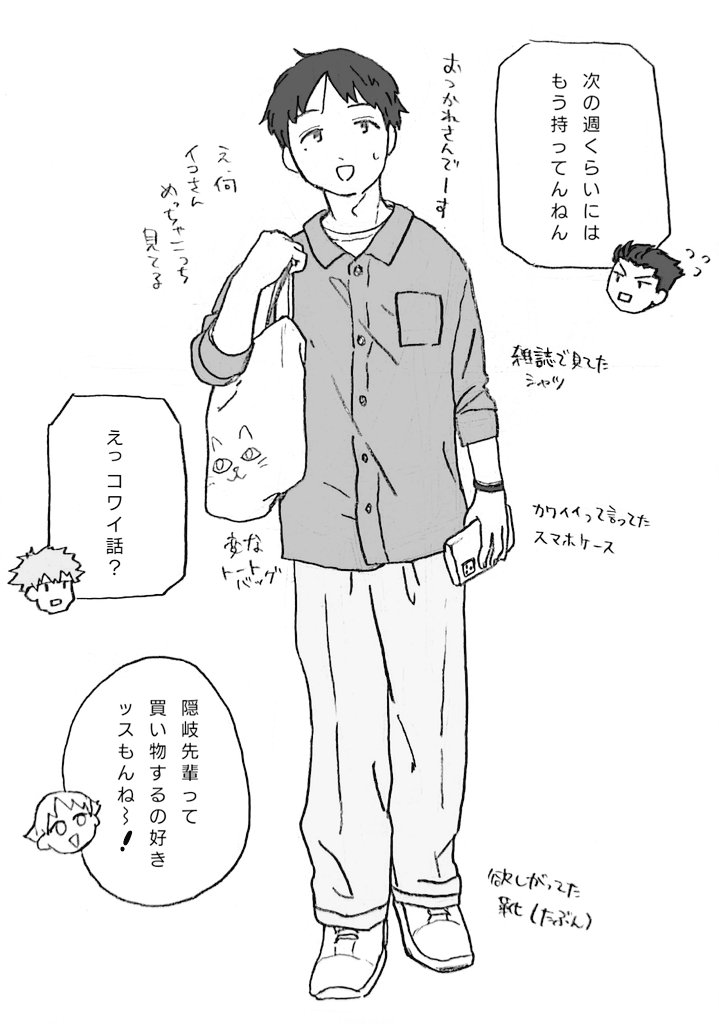 次の週くらいには
もう持ってんねん
おつかれさんでーす
え、何
イコさん
めっちゃこっち
見てる
雑誌で見てた
シャツ
えっコワイ話？
カワイイって言ってた
スマホケース
変な
トート
バッグ
隠岐先輩って
買い物するの好き
ッスもんね〜！
欲しがってた
靴（たぶん）